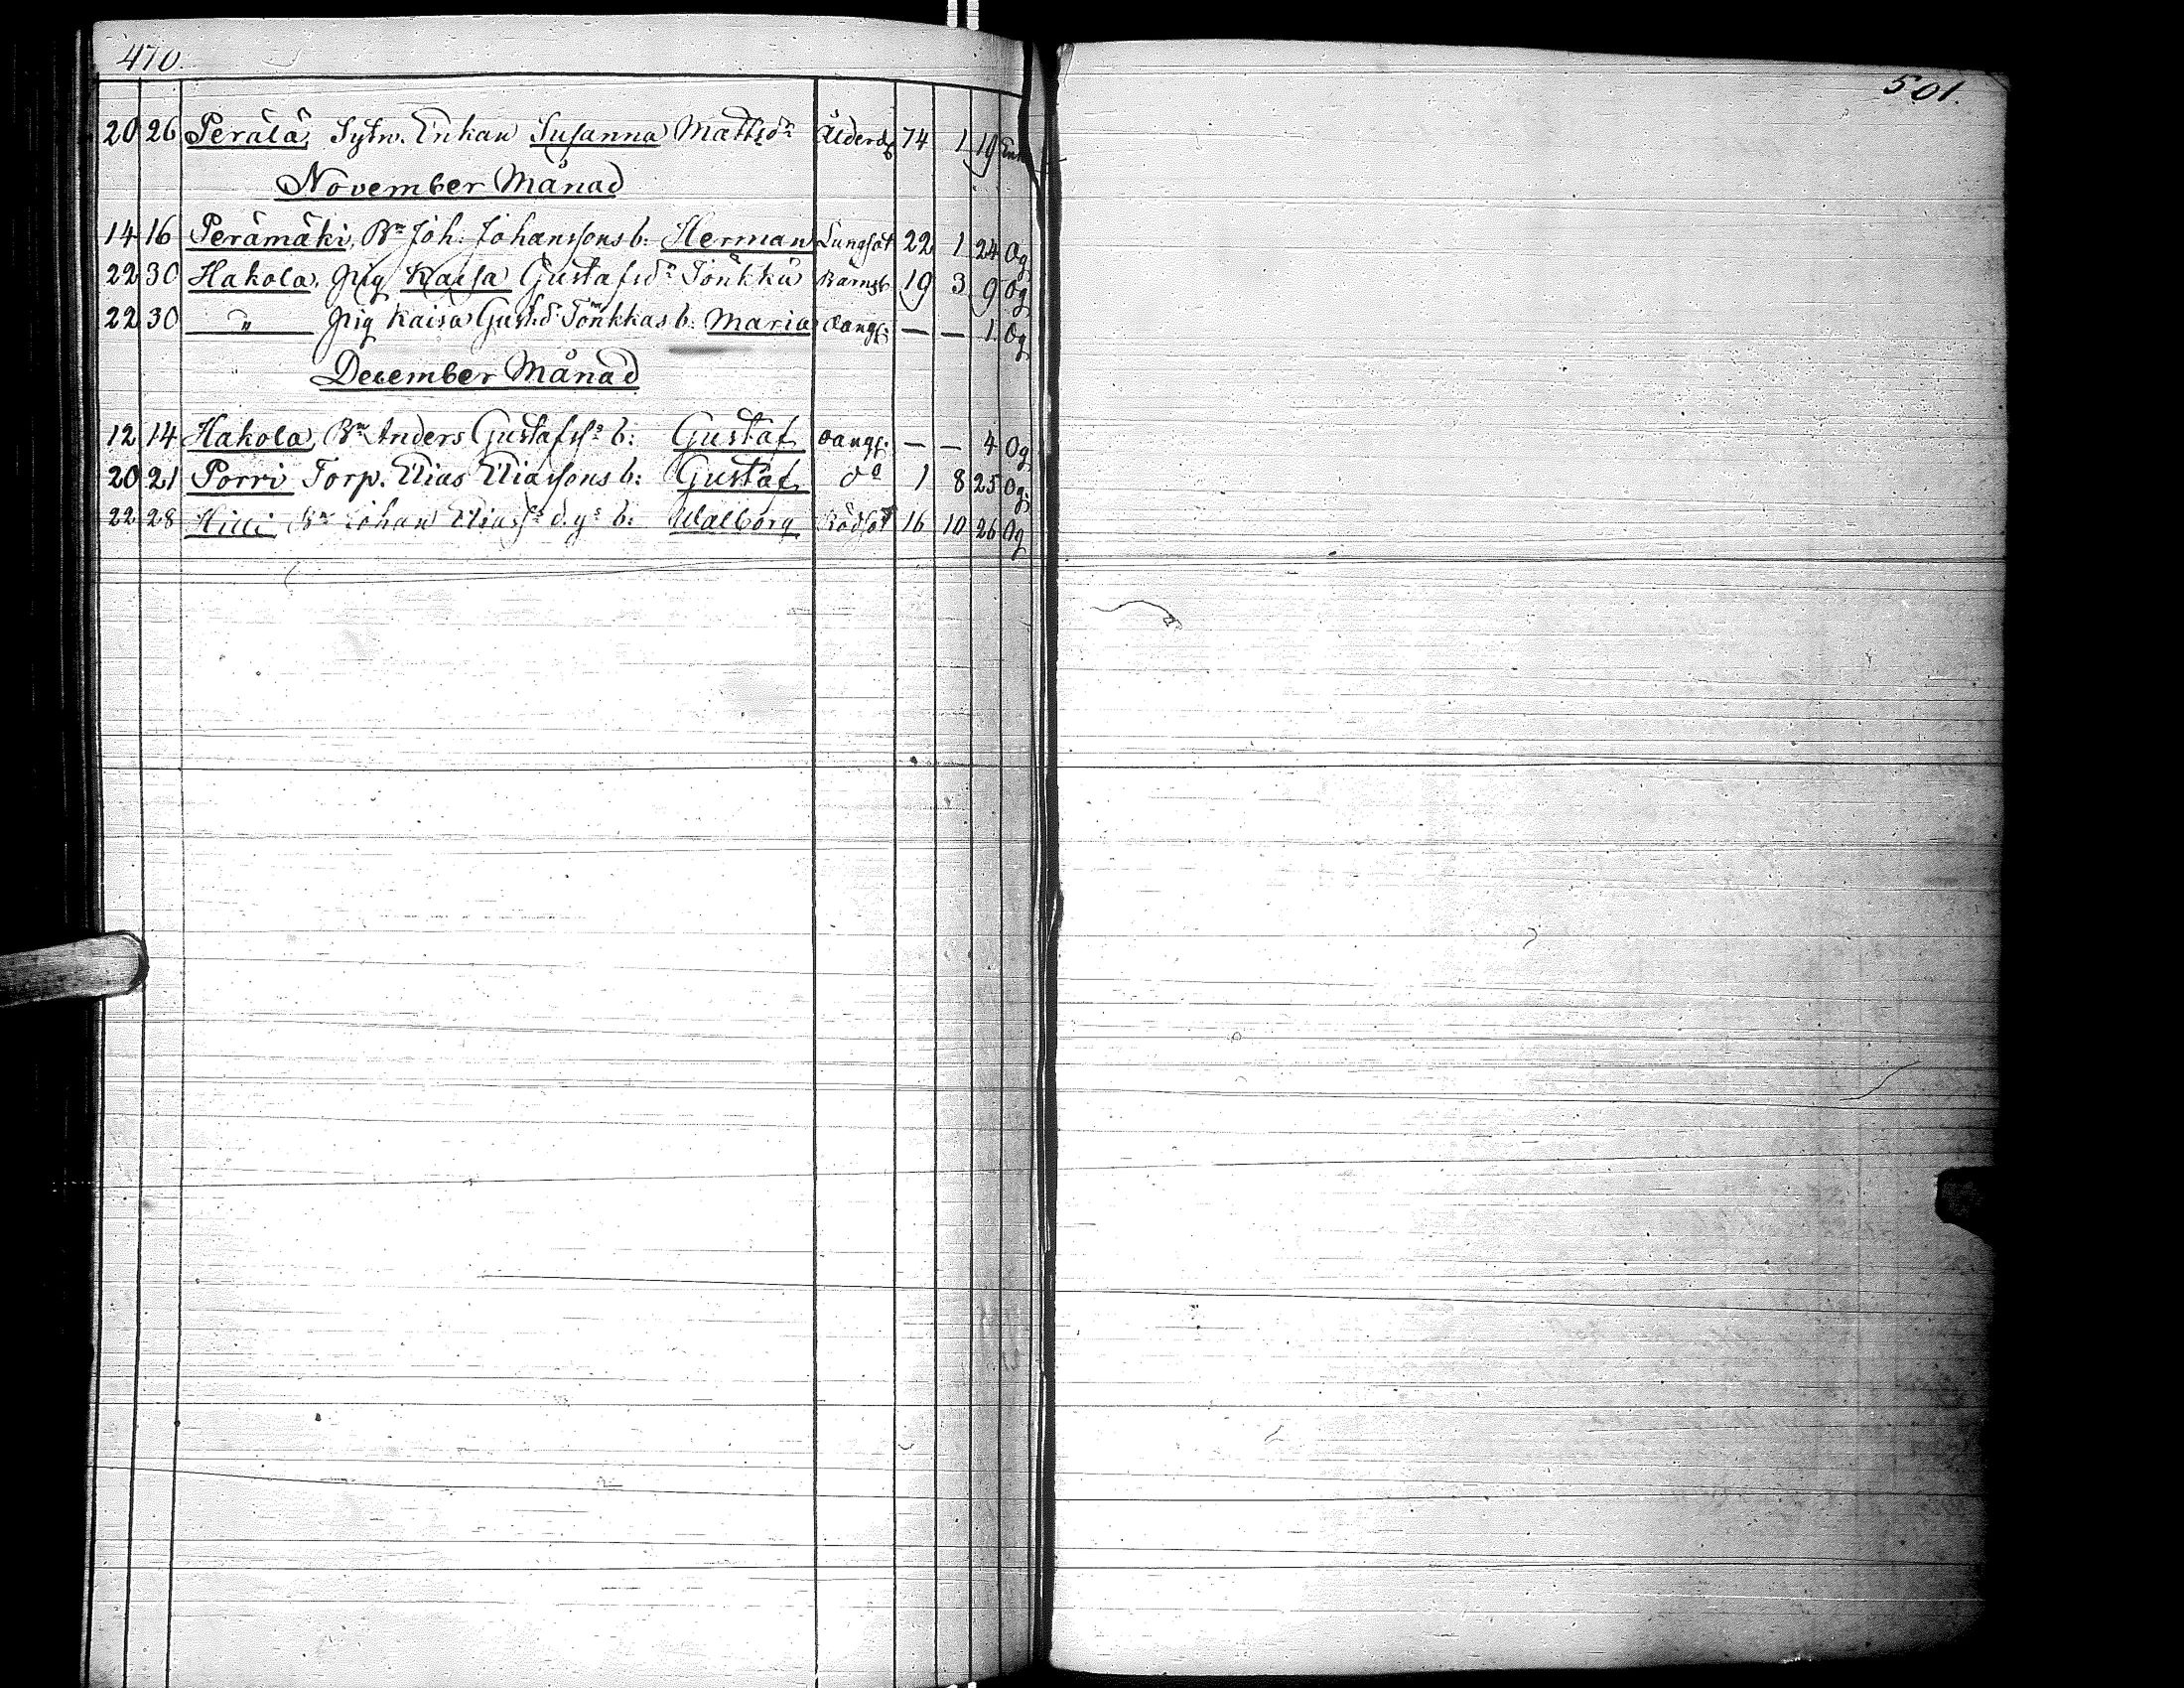 470.
20 26 Perälä, Sytn. Enkan Susanna Mattsdr Ålderd 74 1 19 Enk
November Månad
14 16 Perämäki, Bn Joh: Johanssons b: Herman Lungsot 22 1 24 Og
22 30 Hakola, Pig Kaisa Gustafsdr Tönkkä Barnsb 19 3 9 Og
22 30 " Pig Kaisa Gust.d. Tönkkas b: Maria oangf: — — 1. Og
December Månad
12 14 Hakola, Bn Anders Gustafss b: Gustaf oangf: — — 4 Og
20 21 Porri Torp. Elias Eliassons b: Gustaf do 1 8 25 Og.
22 28 Hilli Bn Johan Eliass d.ys b: Walborg Rödsot 16 10 26 Og
501.